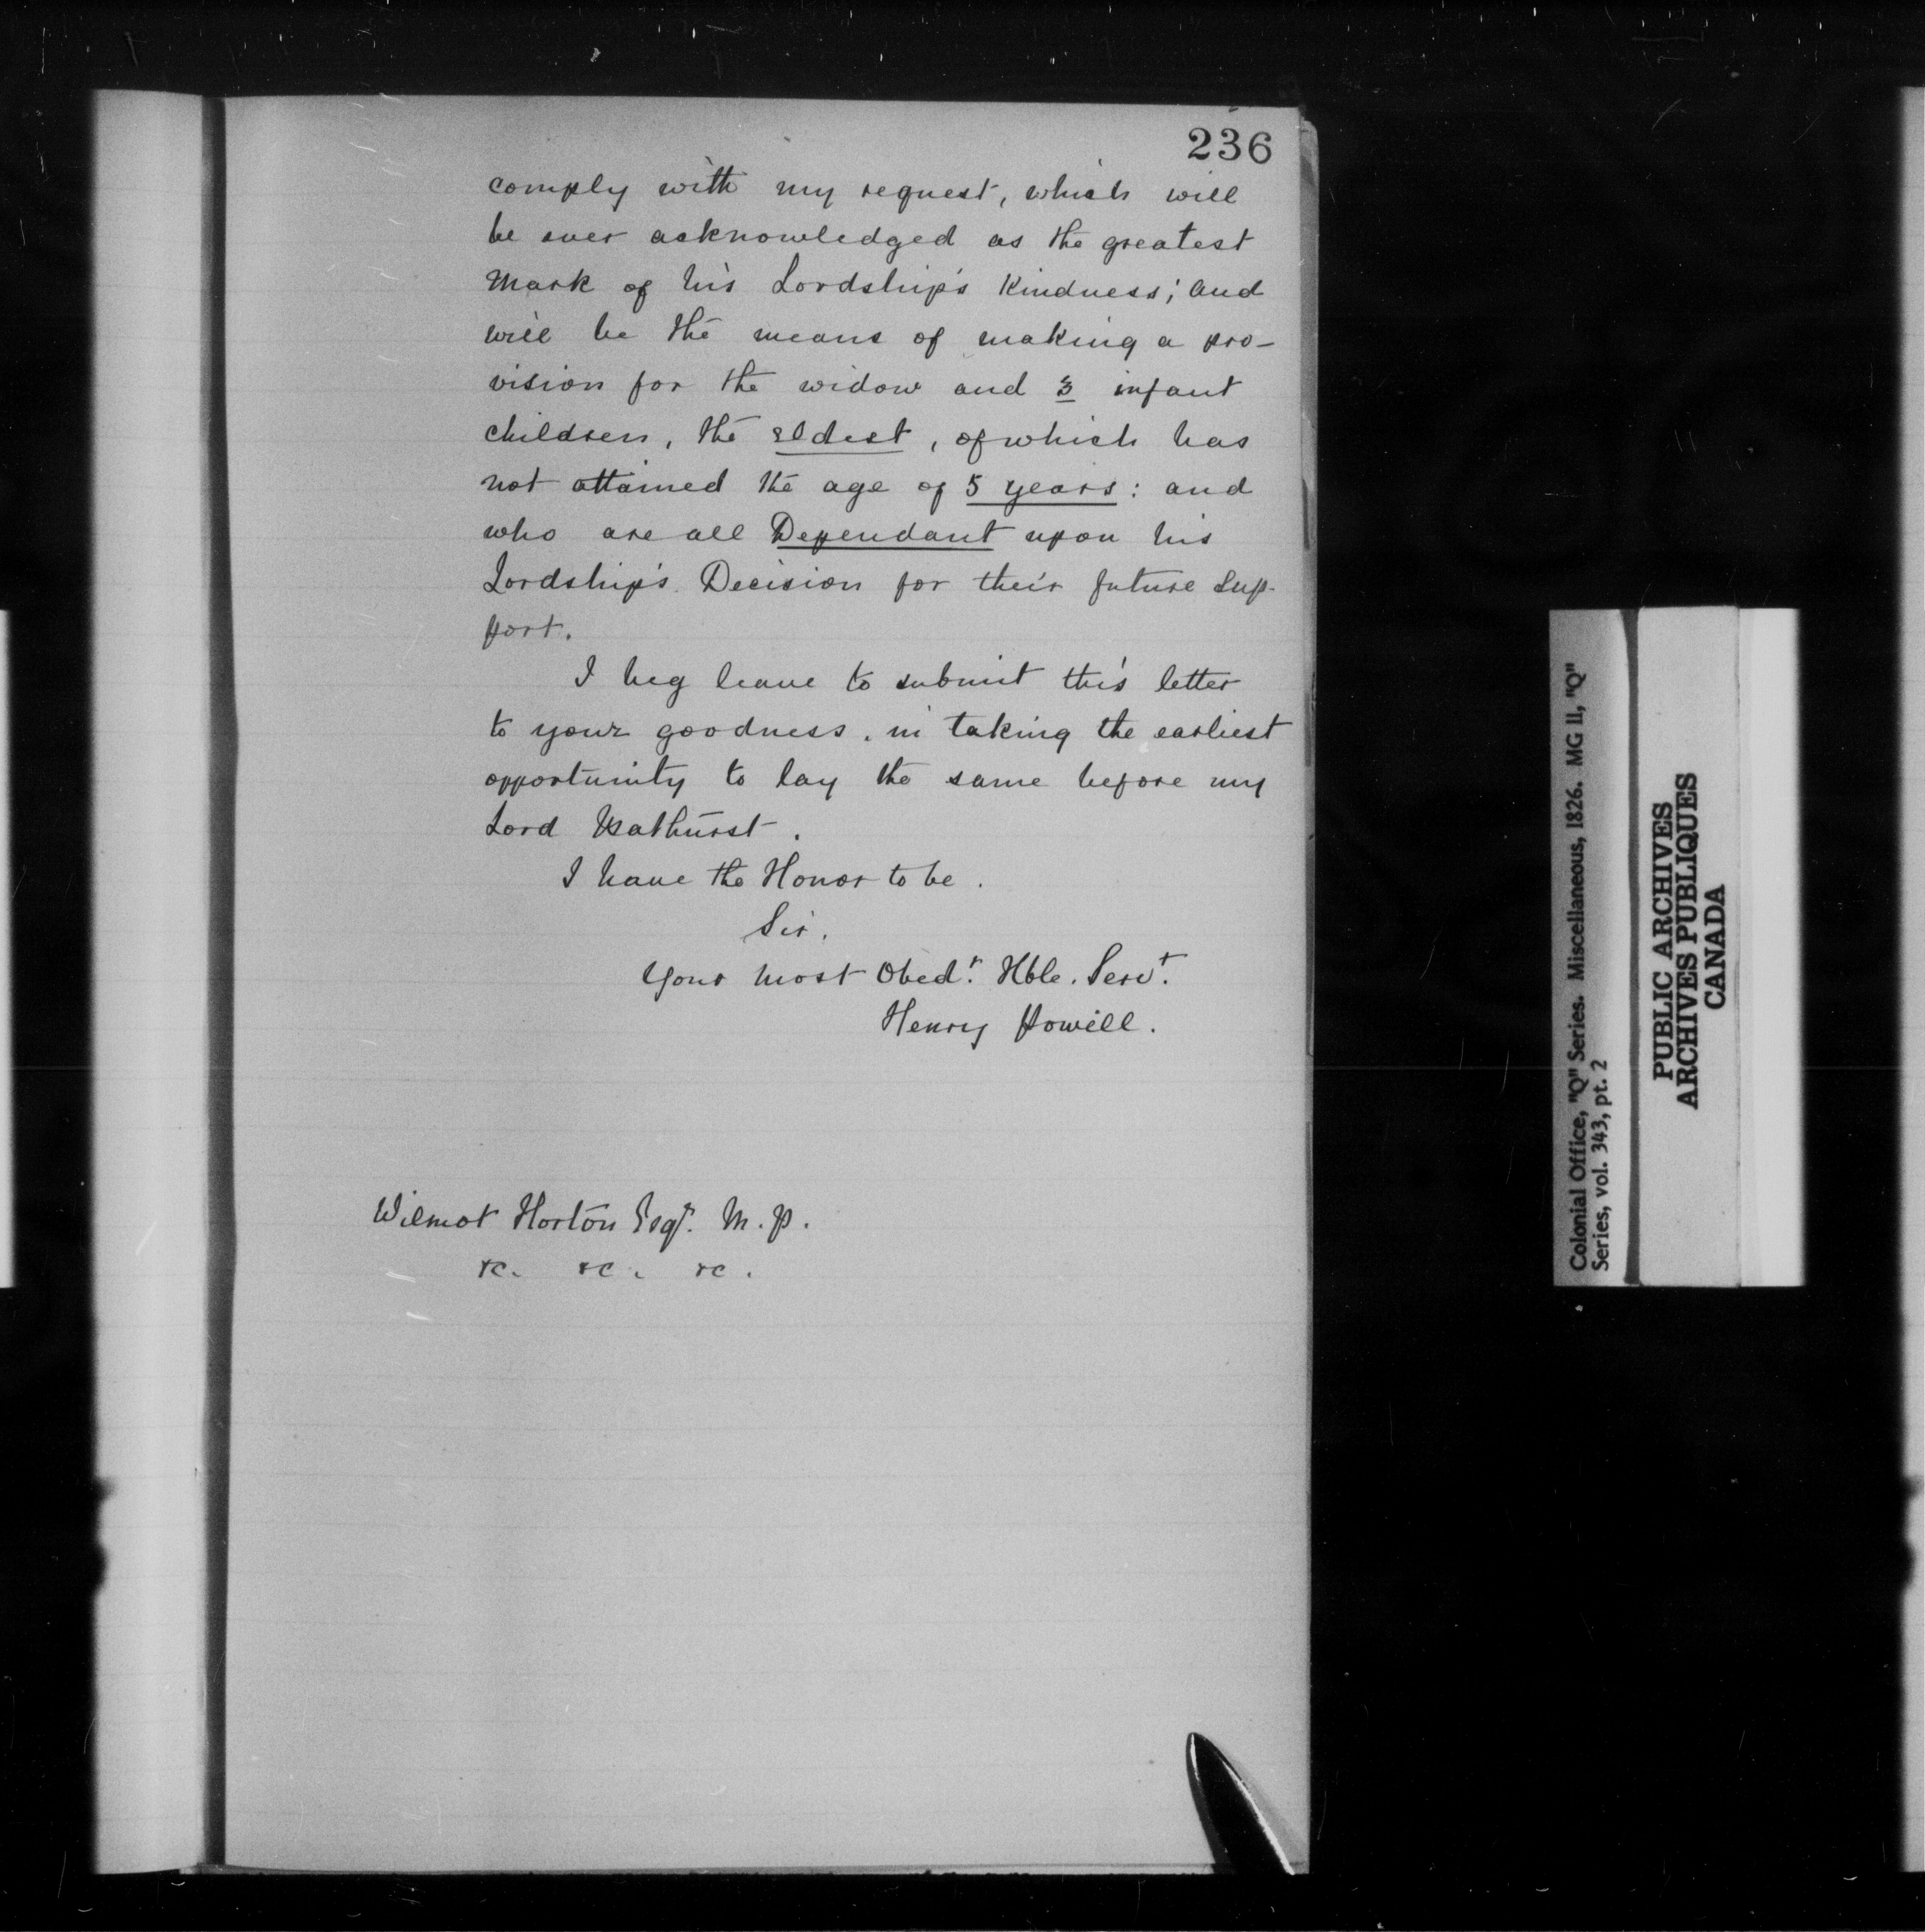 236
comply with my request, which will
be ever acknowledged as the greatest
Mark of his Lordship's Kindness; and
will be the means of making a pro-
vision for the widow and 3 infant
children, the eldest, of which has
not attained the age of 5 years: and
who are all Dependant upon his
Lordship's Decision for their future Sup-
port.
I beg leave to submit this letter
to your goodness, in taking the earliest
opportunity to lay the same before my
Lord Bathurst.
I have the Honor to be.
Sir.
Your most Obedt. Hble. Servt.
Henry Howill.
Wilmot Horton Esqr. M.P.
&c. &c. &c.
Colonial Office, "Q" Series. Miscellaneous, 1826. MG 11, "Q"
Series, vol. 343, pt. 2
PUBLIC ARCHIVES
ARCHIVES PUBLIQUES
CANADA